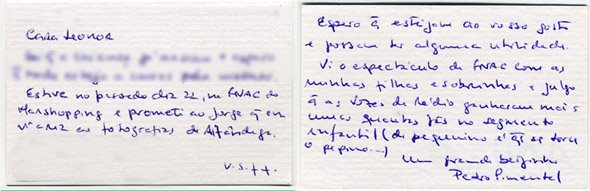 Cara Leonor
Estive no passado dia 22, na FNAC do
Marshopping e prometi ao Jorge q̃ en
viaria as fotografias de Alfândega.
V.S.F.F.
Espero q̃ estejam ao vosso gosto
e possam ter alguma utilidade.
Vi o espectáculo da FNAC com as
minhas filhas e sobrinhas e julgo
q̃ as Vozes da Rádio ganharam mais
umas quantas fãs no segmento
infantil (de pequenino é q̃ se torce
o pepino...)
Um grande beijinho
Pedro Pimentel